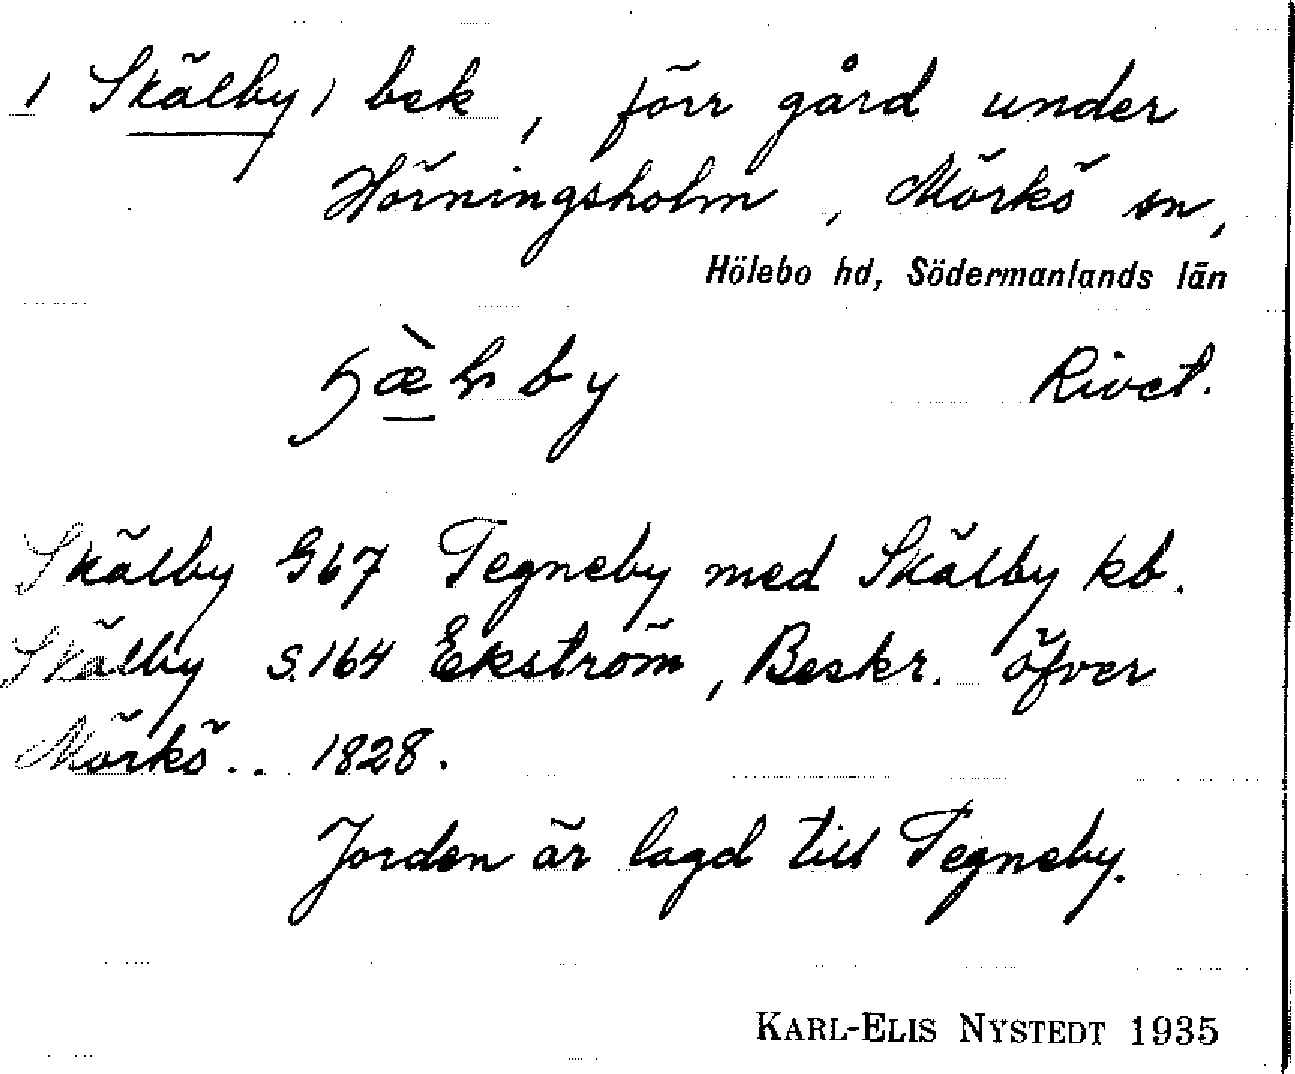 1 Skälby, bek, förr gård under
Hörningsholm, Mörkö sn,
Hölebo hd, Södermanlands län
Rivet.
Skälby G67 Tegneby med Skälby kb.
Skälby s.164 Ekström, Beskr. öfver
Mörkö.. 1828.
Jorden är lagd till Tegneby.
KARL-ELIS NYSTEDT 1935